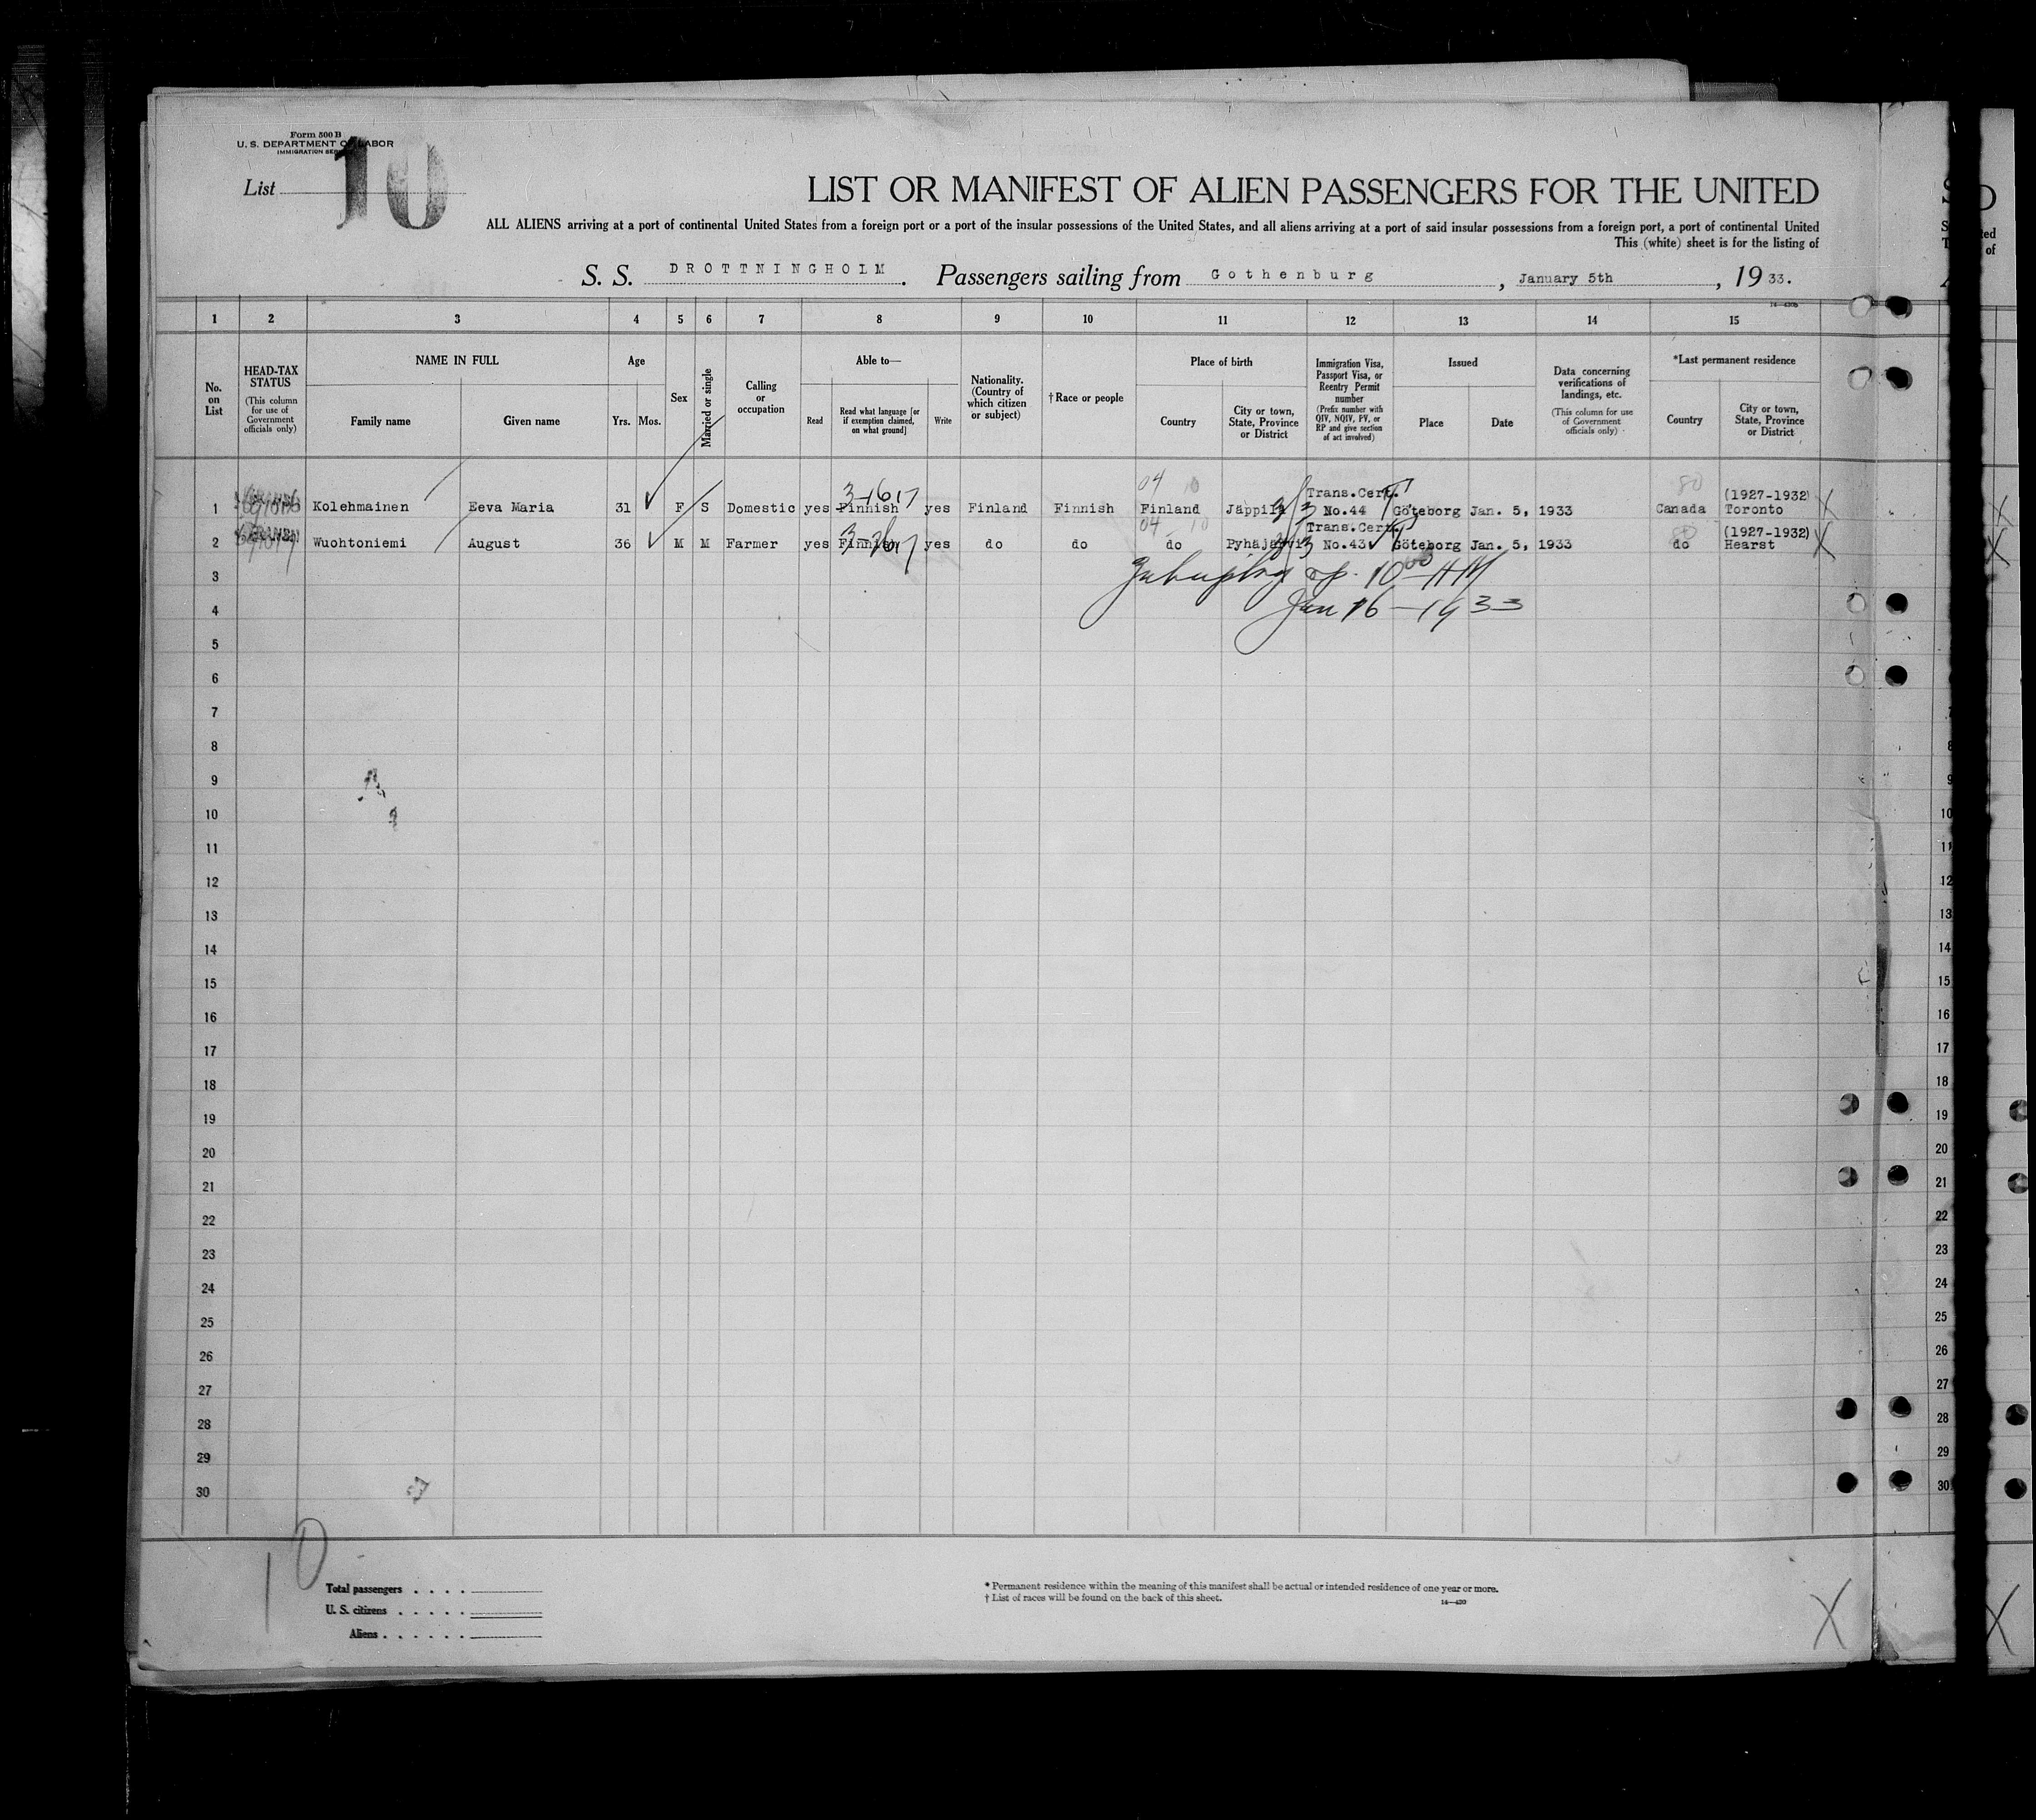 Form 500 B
U. S. DEPARTMENT OF LABOR
IMMIGRATION
List 10
LIST OR MANIFEST OF ALIEN PASSENGERS FOR THE UNITED
ALL ALIENS arriving at a port of continental United States from a foreign port or a port of the insular possessions of the United States, and all aliens arriving at a port of said insular possessions from a foreign port, a port of continental United
This (white) sheet is for the listing of
S. S. DROTTNINGHOLM. Passengers sailing from Gothenburg, January 5th, 1933.
1 2 3 4 5 6 7 8 9 10 11 12 13 14 15
No. on List
HEAD-TAX STATUS
(This column for use of Government officials only)
NAME IN FULL
Family name Given name
Age
Yrs. Mos.
Sex
Married or single
Calling or occupation
Able to—
Read
Read what language [or if exemption claimed, on what ground]
Write
Nationality. (Country of which citizen or subject)
†Race or people
Place of birth
Country
City or town, State, Province or District
Immigration Visa, Passport Visa, or Reentry Permit number
(Prefix number with QIV, NQIV, PV, or RP and give section of act involved)
Issued
Place Date
Data concerning verifications of landings, etc.
(This column for use of Government officials only)
*Last permanent residence
Country
City or town, State, Province or District
04 10 Trans.Cert. 80 (1927-1932)
1 Kolehmainen Eeva Maria 31 F S Domestic yes Finnish yes Finland Finnish Finland Jäppilä No.44 Göteborg Jan. 5, 1933 Canada Toronto
04 10 Trans.Cert. 80 (1927-1932)
2 Wuohtoniemi August 36 M M Farmer yes Finnish yes do do do Pyhäjärvi No.43 Göteborg Jan. 5, 1933 do Hearst
3
Jan 16-1933
4
5
6
7
8
9
10
11
12
13
14
15
16
17
18
19
20
21
22
23
24
25
26
27
28
29
30
10
Total passengers
U. S. citizens
Aliens
* Permanent residence within the meaning of this manifest shall be actual or intended residence of one year or more.
† List of races will be found on the back of this sheet.
14—430